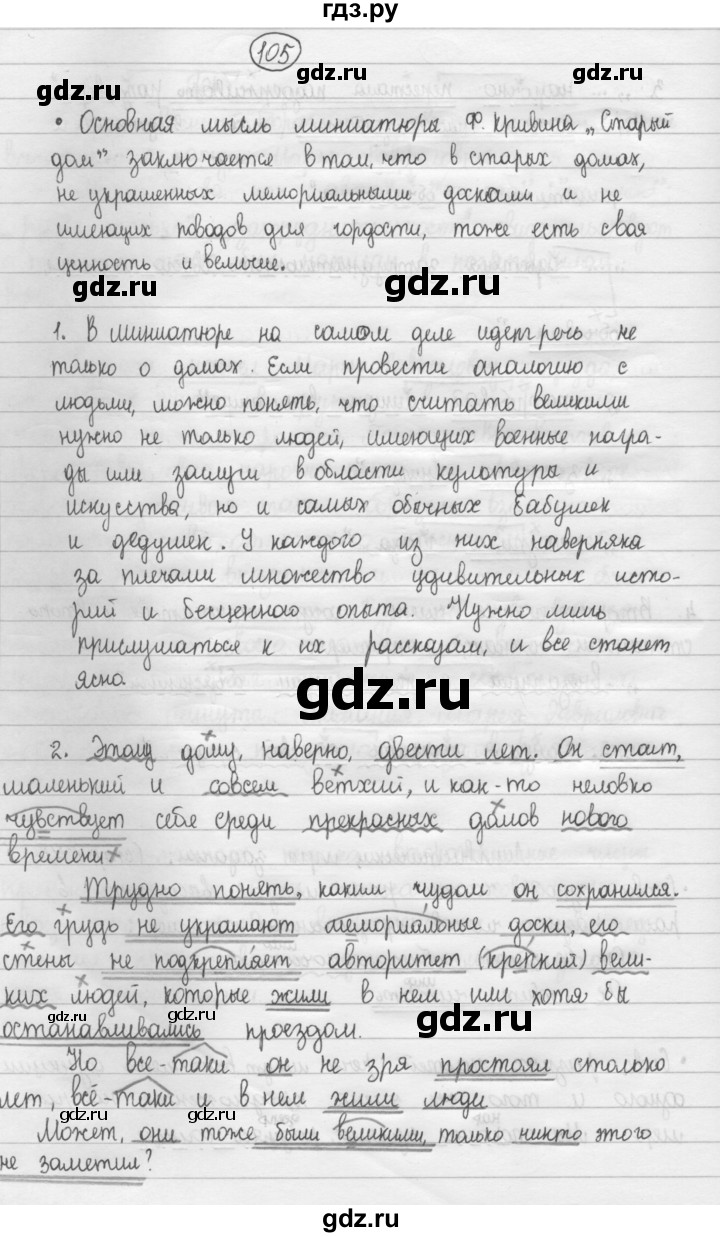 гдз.ру
105
gdz.ru gdz.ru
• Основная мысль миниатюры Ф. Кривина „Старый
дом" заключается в том, что в старых домах,
не украшенных мемориальными досками и не
имеющих поводов для гордости, тоже есть своя
ценность и величие.
gdz.ru gdz.ru
1. В миниатюре на самом деле идет речь не
только о домах. Если провести аналогию с
людьми, можно понять, что считать великими
нужно не только людей, имеющих военные награ-
ды или заслуги в области культуры и
искусства, но и самых обычных бабушек
и дедушек. У каждого из них наверняка
за плечами множество удивительных исто-
рий и бесценного опыта. Нужно лишь
прислушаться к их рассказам, и все станет
ясно.
gdz.ru
2. Этому дому, наверно, двести лет. Он стоит,
маленький и совсем ветхий, и как-то неловко
чувствует себя среди прекрасных домов нового
времени
Трудно понять, каким чудом он сохранился.
Его грудь не украшают мемориальные доски, его
стены не подкрепляет авторитет (крепкий) вели-
ких людей, которые жили в нем или хотя бы
останавливались проездом.
gdz.ru
Но все-таки он не зря простоял столько
лет, всё-таки и в нем жили люди
Может, они тоже были великими, только никто этого
не заметил?
gdz.ru gdz.ru
gdz.ru